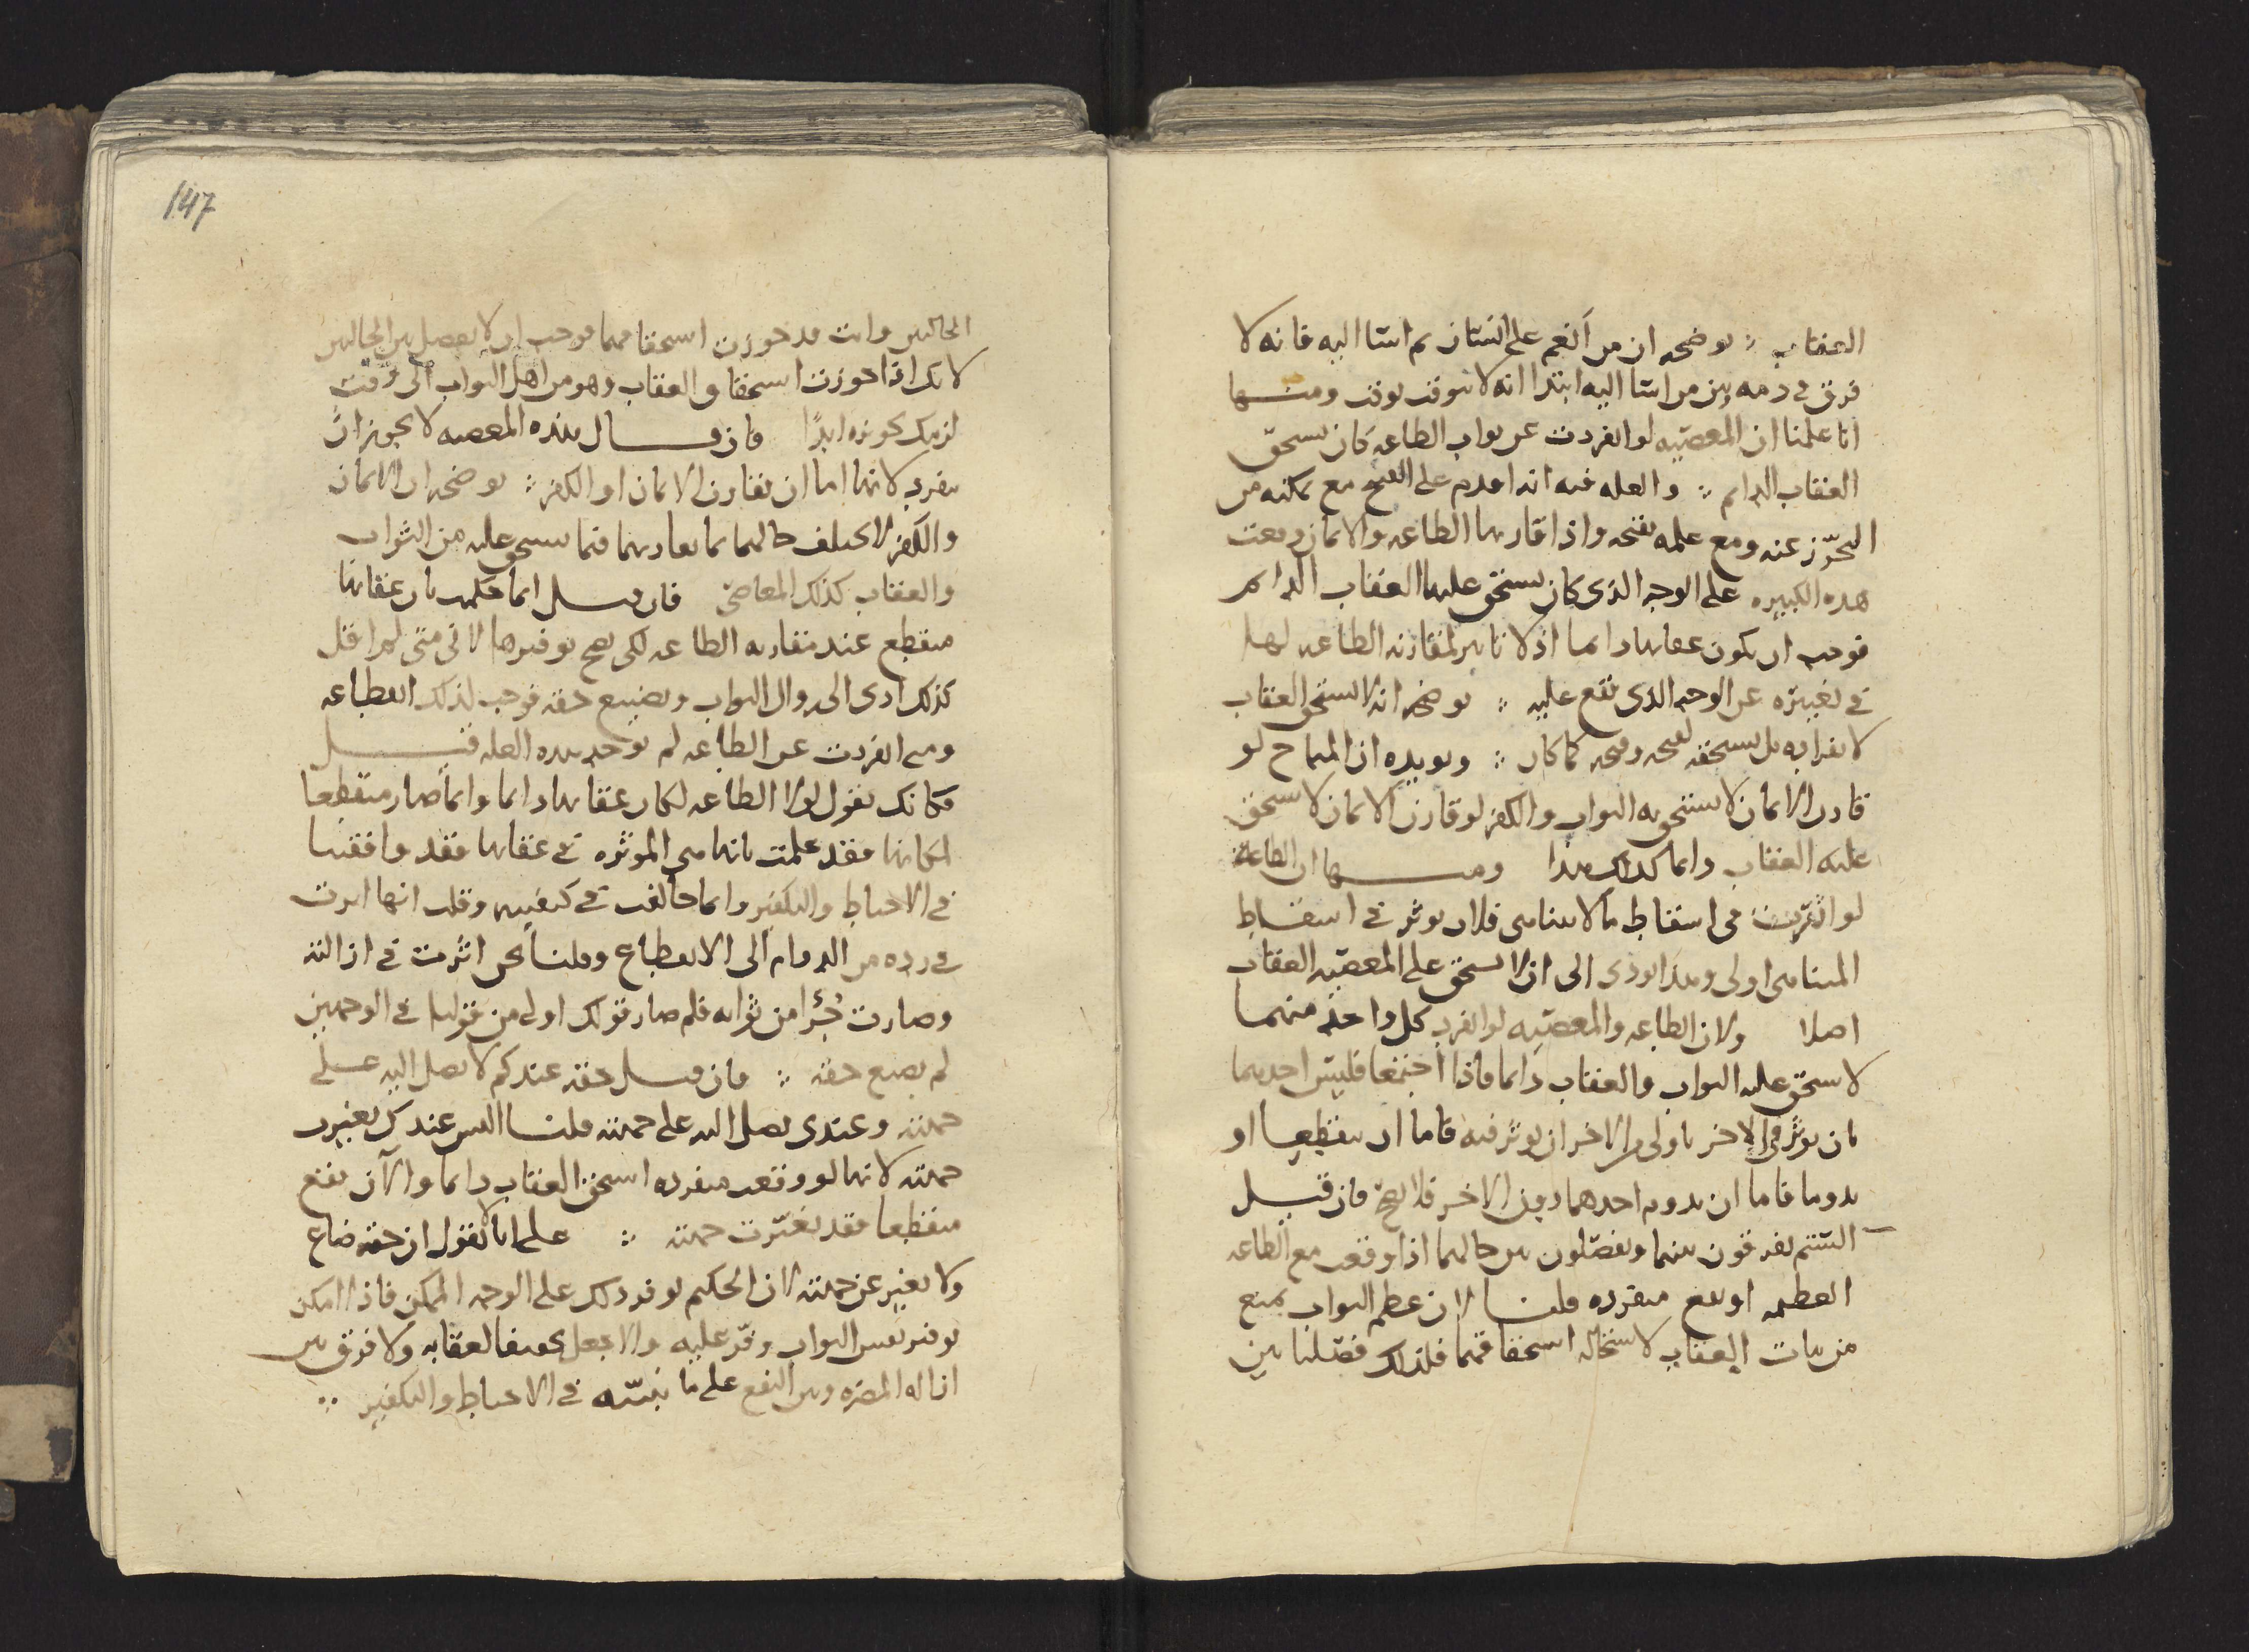 العقاب ؛ يوضحه ان من أنعم على انسان ثم اسا اليه فانه لا
فرق في ذمه بين من اسا اليه ابتدا انه لا يتوقت بوقت ومنها
انا علمنا ان المعصيه لو انفردت عن ثواب الطاعه كان يستحق
العقاب الدايم ؛ والعله فيه انه اقدم على القبيح مع تمكنه من
التحرّز عنه ومع علمه بقبحه واذا قارنها الطاعه والايمان وقعت
هذه الكبيره على الوجه الذي كان يستحق عليها العقاب الدايم
فوجب ان يكون عقابها دايما اذ لا تاثير لمقارنه الطاعه لها
في تغييره عن الوجه الذي تقع عليه ؛ يوضحه انه لا يستحق العقاب
لانفراده بل يستحقه لقبحه وقبحه كما كان ؛ ويويده ان المباح لو
قارن الايمان لا يستحق به الثواب والكفر لو قارن الايمان لا يستحق
عليه العقاب دايما كذلك هذا ومنها ان الطاعة
لو اثّرت في اسقاط ما لا يتناهى فلان يوثر في اسقاط
المتناهي اولى وهذا يودي الى ان لا يستحق على المعصيه العقاب
اصلا ولان الطاعه والمعصيه لو انفرد كل واحد منهما
لا يستحق عليه الثواب والعقاب دايما فاذا اجتمعا فليس احدهما
بان يوثر في الاخر باولى من الاخر ان يوثر فيه فاما ان ينقطعا او
يدوما فاما ان يدوم احدهما دون الاخر فلا يصحّ فان قيل
الستم تفرقون بينهما وتفصّلون بين حالهما اذا وقعت مع الطاعه
العظيمه او تقع منفرده قلنا لان عظم الثواب يمنع
من ثبات العقاب لاستحاله استحقاقهما فلذلك فصّلنا بين
147
الحالين وانت قد جوزت استحقاقهما فوجب ان لا يفصل بين الحالين
لانك اذا جوزت استحقاق العقاب وهو من اهل الثواب الى وقت
لزمك تجويزه ابدًا فان قال هذه المعصيه لا يجوز ان
تنفرد لانها اما ان تقارن الايمان او الكفر ؛ يوضحه ان الايمان
والكفر لا يختلف حالهما بما يقارنهما فيما يستحق عليه من الثواب
والعقاب كذلك المعاصي فان قيل انما حكمت بان عقابها
منقطع عند مقارنه الطاعه لكي يصح توفيرها لاني متى لم اقل
كذلك ادى الى زوال الثواب وتضييع حقه فوجب لذلك انقطاعه
ومتى انفردت عن الطاعه لم توجد هذه العله قيل
فكانك تقول لولا الطاعه لكان عقابها دايما وانما صار منقطعا
لمكانها فقد علمت بانها هي الموثره في عقابها فقد وافقتنا
في الاحباط والتكفير وانما خالفت في كيفيته وقلت انها اثرت
في رده من الدوام الى الانقطاع وقلنا نحن اثرت في ازالته
وصارت جُزًا من ثوابه فلم صار قولك اولى من قولنا في الوجهين
لم يضيع حقه ؛ فان قيل حقه عندكم لا يصل اليه على
جهته وعندي يصل اليه على جهته قلنا اليس عندك تغيرت
جهته لانها لو وقعت منفرده استحق العقاب دايما والآن تقع
منقطعا فقد تغيّرت جهته ؛ على انا لا نقول ان حقه ضاع
ولا تغير عن جهته لان الحكيم يوفر ذلك على الوجه الممكن فاذا امكن
توفير نفس الثواب وفّر عليه والا جعل تخفيفا لعقابه ولا فرق بين
ازاله المضره وبين النفع على ما نبيّنه في الاحباط والتكفير ؛